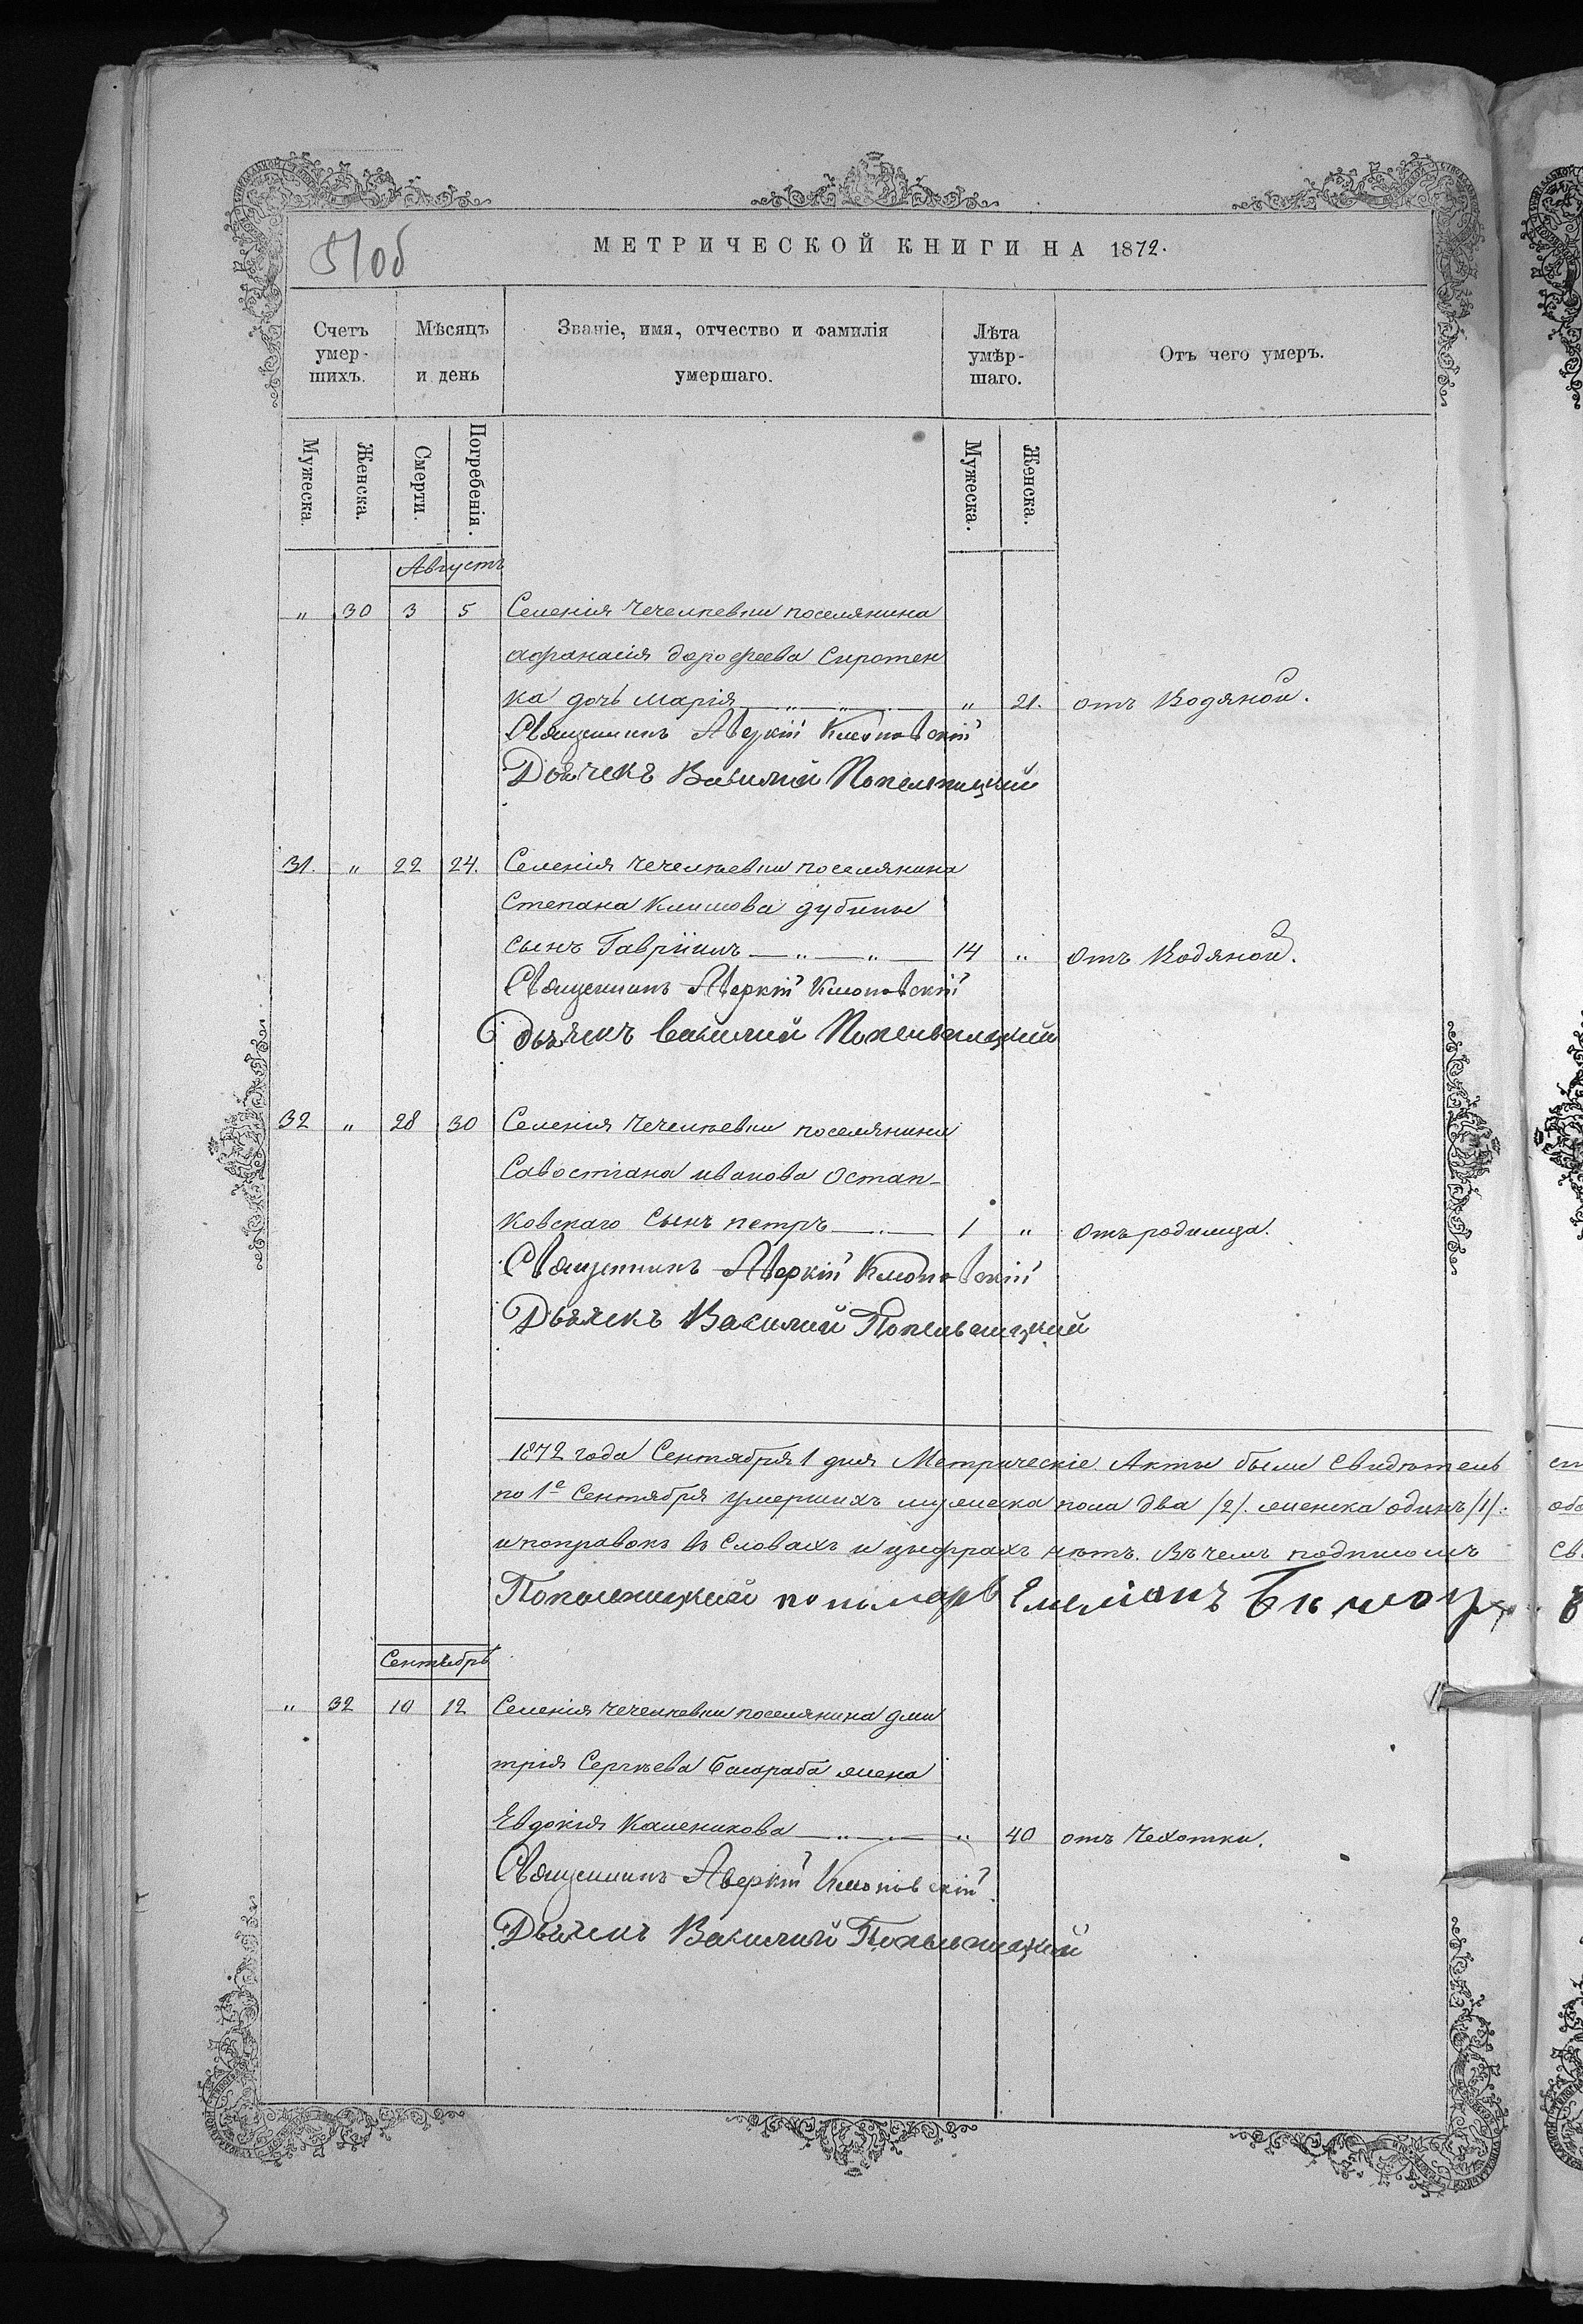 51об
МЕТРИЧЕСКОЙ КНИГИ НА 1872.
Счетъ умер-шихъ.
Мѣсяцъ и день
Званіе, имя, отчество и фамилія умершаго.
Лѣта умѣр-шаго.
Отъ чего умеръ.
Мужеска.
Женска.
Смерти.
Погребенія.
Мужеска.
Женска.
Августъ
" 30 3 5 Селенія Чечелѣевки поселянина
афанасія дорофеева Сиротен
ка дочь марія — " — " — " 21. отъ Водяной.
Священникъ Аверкій Клоповскій
Дьячекъ Василий Попельницкий
31. " 22 24. Селенія Чечелѣевки поселянина
Степана Климова дубины
сынъ Гавріилъ — " — " — 14 " отъ Водяной.
Священникъ Аверкій Клоповскій
Дьячекъ василий Попельницкий
32 " 28 30 Селенія Чечелѣевки поселянина
Савостіана иванова Остап-
ковскаго сынъ петръ — " — 1 " отъ родимца.
Священникъ Аверкій Клоповскій
Дьячекъ Василий Попельницкий
1872 года Сентября 1 дня Метрическіе Акты были свидѣтель
по 1е Сентября умершихъ мужеска пола два /2/. женска одинъ /1/:
и поправокъ въ словахъ и цыфрахъ нѣтъ. Въ чемъ подписомъ
Попельницкий пономарь Емеліанъ
Сентябрь
" 32 10 12 Селенія Чечелѣевки поселянина дми
трія Сергѣева Балораба жена
Евдокія Каленикова — " — " 40 отъ Чехотки.
Священникъ Аверкій Клоповскій
Дьячекъ Василий Попельницкий